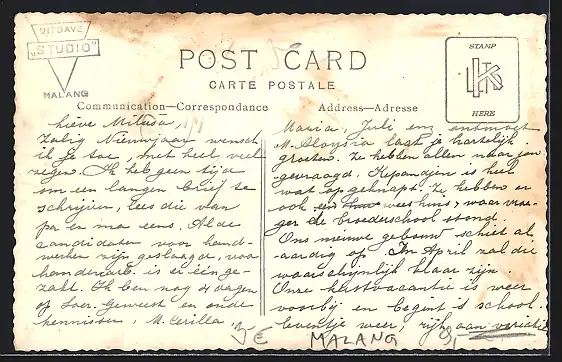 UITGAVE
"STUDIO"
MALANG
POST CARD
CARTE POSTALE
STAMP
LKS
HERE
Communication—Correspondance
Address—Adresse
Lieve Miluda,
Zalig Nieuwjaar wensch
ik je toe, met heel veel
zegen. Ik heb geen tijd
om een langen brief te
schrijven, lees die van
pa en ma eens. Al de
candidaten voor hand-
werken zijn geslaagd, voor
handenarb. is er één ge-
zakt. Ik ben nog 4 dagen
op Soer. Geweest en onde
kennissen M. Cerilla
Maria, Juli en ontmoet
M. Aloysia laat je hartelijk
groeten. Ze hebben allen naar jou
gevraagd. Kepandjen is heel
wat opgeknapt. Ze hebben er
ook een weeshuis, waar vroe-
ger de broederschool stond.
Ons nieuwe gebouw schiet al
aardig op. In April zal die
waarschijnlijk klaar zijn.
Onze kerstvacantie is weer
voorbij en begint 's school-
leventje weer, rijk aan variatie
3,- €
MALANG